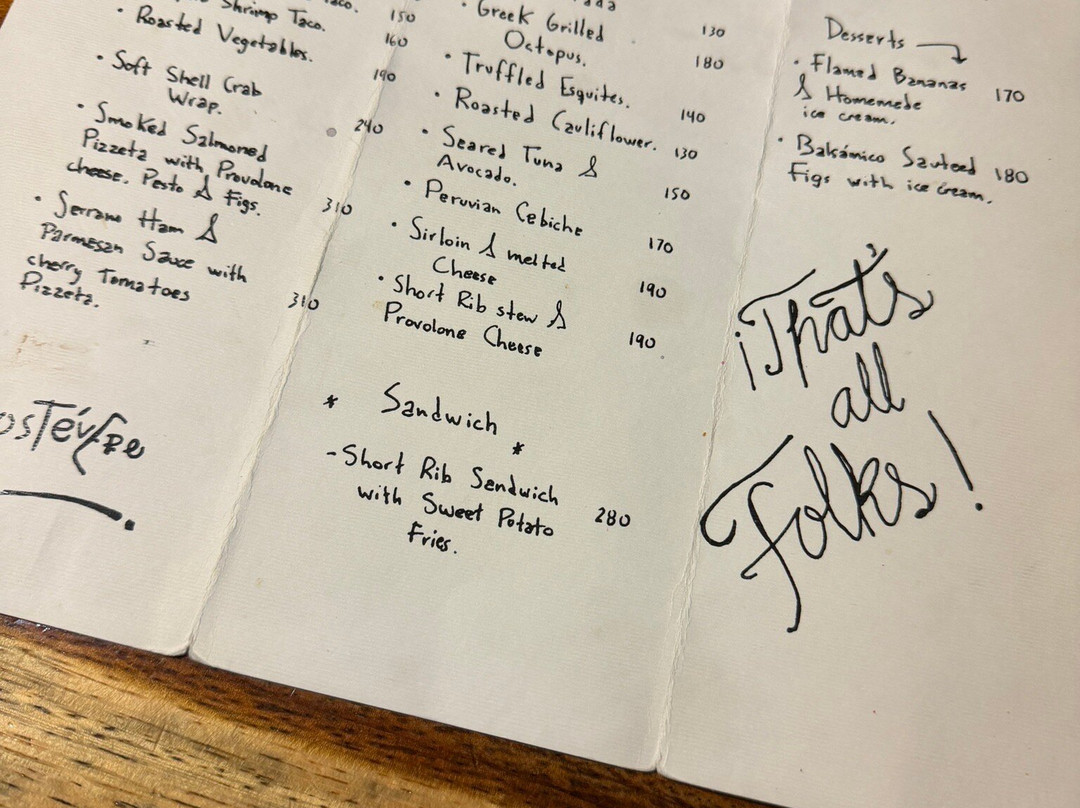 Shrimp Taco. 150
• Roasted Vegetables. 160
• Soft Shell Crab 190
Wrap.
• Smoked Salmoned 240
Pizzeta with Provolone
cheese. Pesto & Figs. 310
• Serrano Ham &
Parmesan Sauce with
cherry Tomatoes 310
Pizzeta.
• Greek Grilled 130
Octopus. 180
• Truffled Esquites. 140
• Roasted Cauliflower. 130
• Seared Tuna &
Avocado. 150
• Peruvian Cebiche 170
• Sirloin & melted
Cheese 190
• Short Rib stew &
Provolone Cheese 190
* Sandwich *
- Short Rib Sandwich
with Sweet Potato 280
Fries.
Desserts
• Flamed Bananas 170
& Homemede
ice cream.
• Balsámico Sauteed 180
Figs with ice cream.
¡That's
all
Folks!